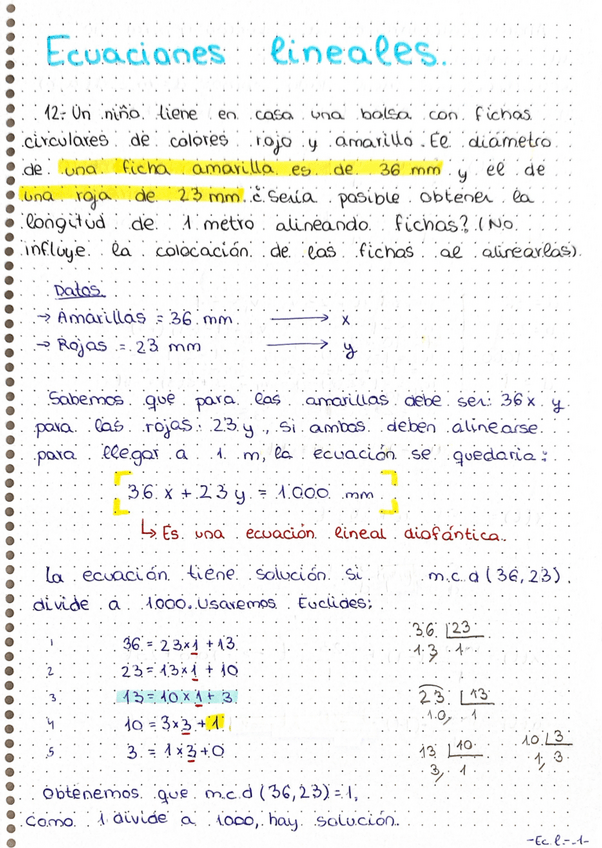 Ecuaciones lineales.
12.- Un niño tiene en casa una bolsa con fichas
circulares de colores rojo y amarillo. El diámetro
de una ficha amarilla es de 36 mm y el de
una roja de 23 mm. ¿Sería posible obtener la
longitud de 1 metro alineando fichas? (No
influye la colocación de las fichas al alinearlas).
Datos
→ Amarillas = 36 mm → x
→ Rojas = 23 mm → y
Sabemos que para las amarillas debe ser: 36x y
para las rojas: 23y, si ambas deben alinearse
para llegar a 1 m, la ecuación se quedaría:
[36x + 23y = 1.000 mm]
↳ Es una ecuación lineal diofántica.
La ecuación tiene solución si m.c.d (36,23)
divide a 1000. Usaremos Euclides:
1 36 = 23×1 + 13
2 23 = 13×1 + 10
3 13 = 10×1 + 3
4 10 = 3×3 + 1
5 3 = 1×3 + 0
36 23
13 1
23 13
10, 1
13 10
3, 1
10 3
1, 3
Obtenemos que m.c.d (36,23) = 1,
como 1 divide a 1000, hay solución.
-Ec. l. - 1-